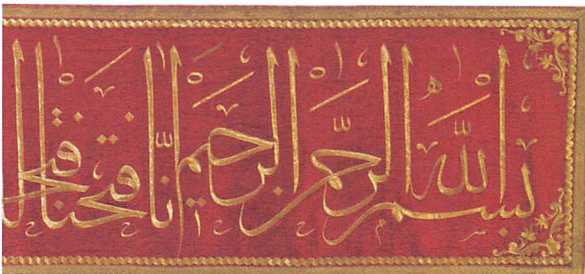 بسم الله الرحمن الرحيم انا فتحنا فتحا